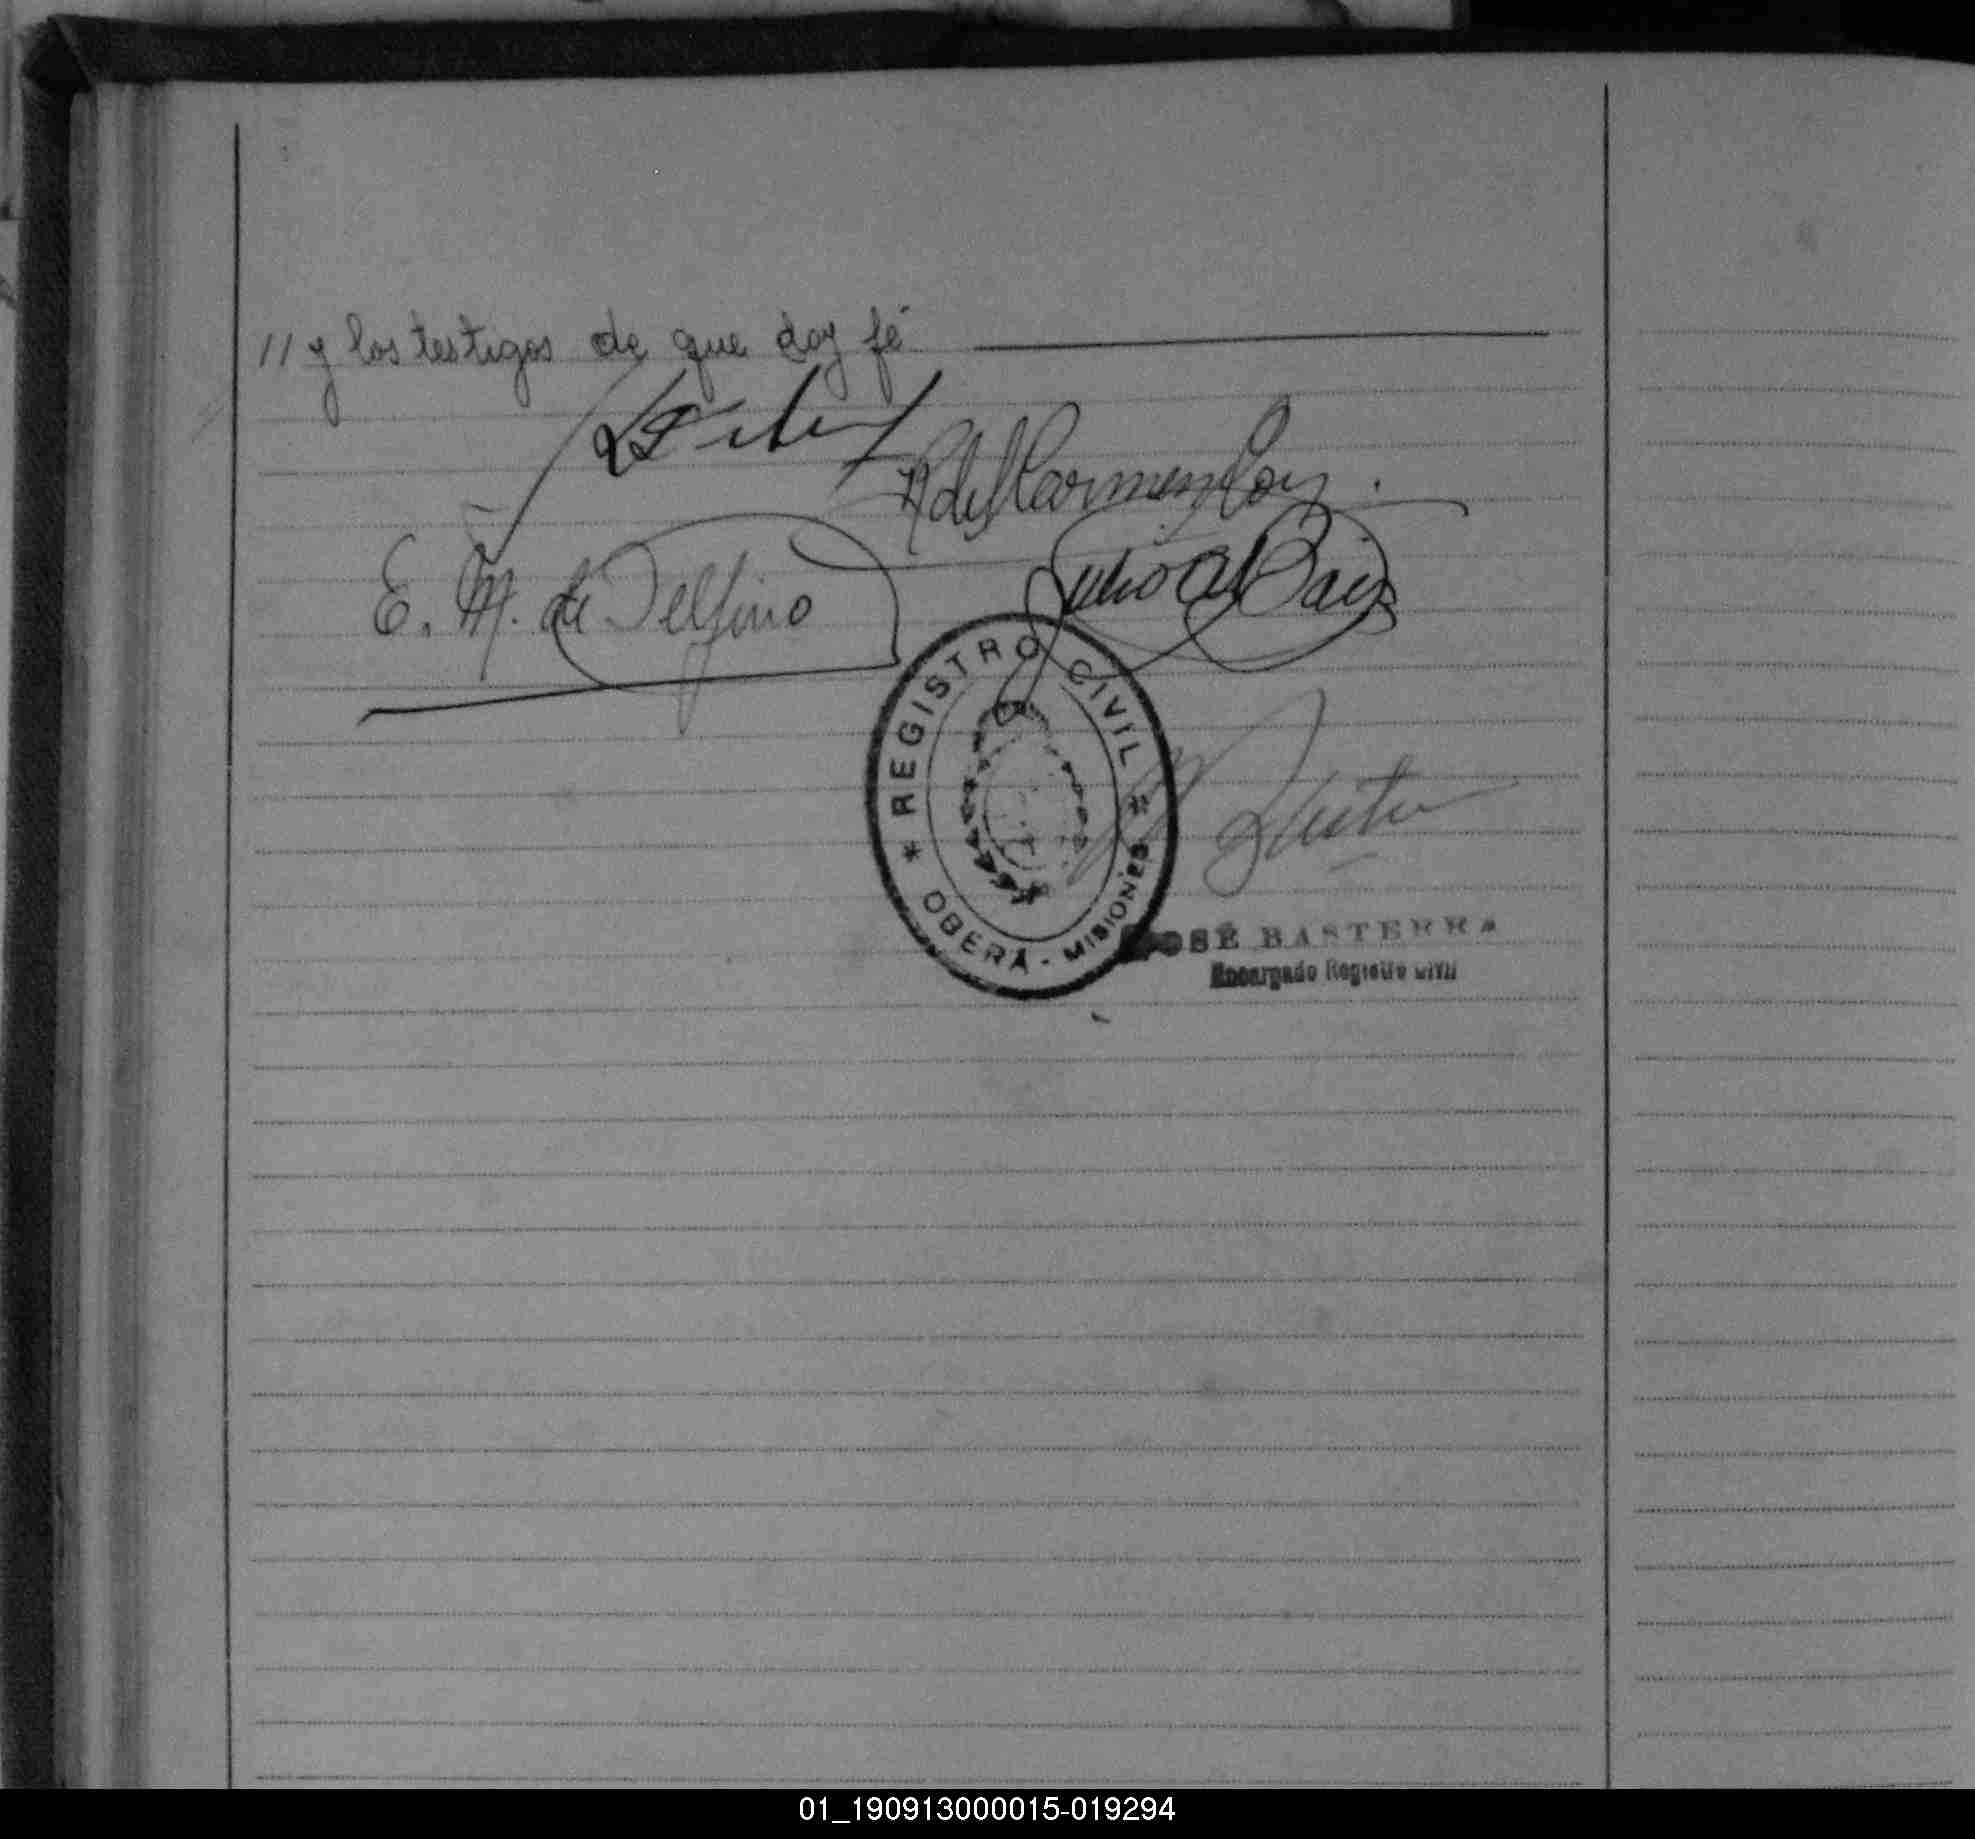 // y los testigos de que doy fé
R del Carmen
E. M. de Delfino
Julio
* REGISTRO CIVIL *
OBERÁ - MISIONES
JOSÉ BASTERRA
Encargado Registro Civil
01_190913000015-019294